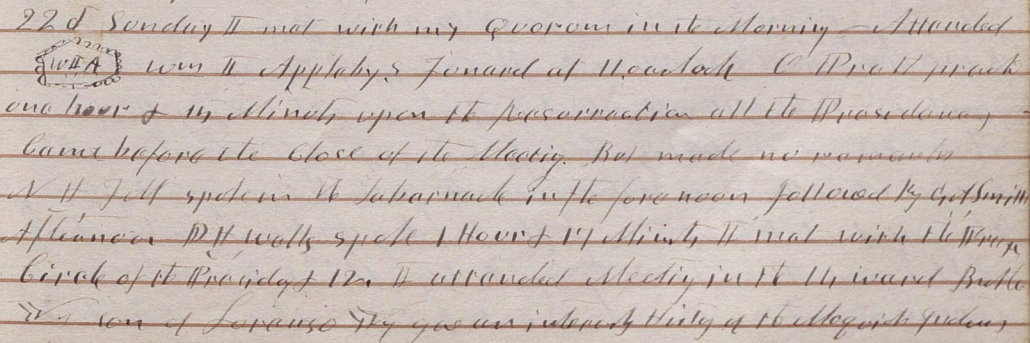 22d Sunday I met with my Quorom in the Morning - Attended
WHA Wm H Applebys Funeral at 11 oclock O Pratt preach
one hour & 15 Minuts upon the Resurrection all the Presidency
Came before the Close of the Meeting. But made no remarks
N H Felt spoke in the Tabernacle in the forenoon followed By G A Smith
Afternoon D H Wells spoke 1 Hour & 17 Minuts I met with the Prayer
Circle of the Presidy & 12. I attended Meeting in the 14 ward Brother
son of Lorenzo gave an interesting History of the Moquich Indians